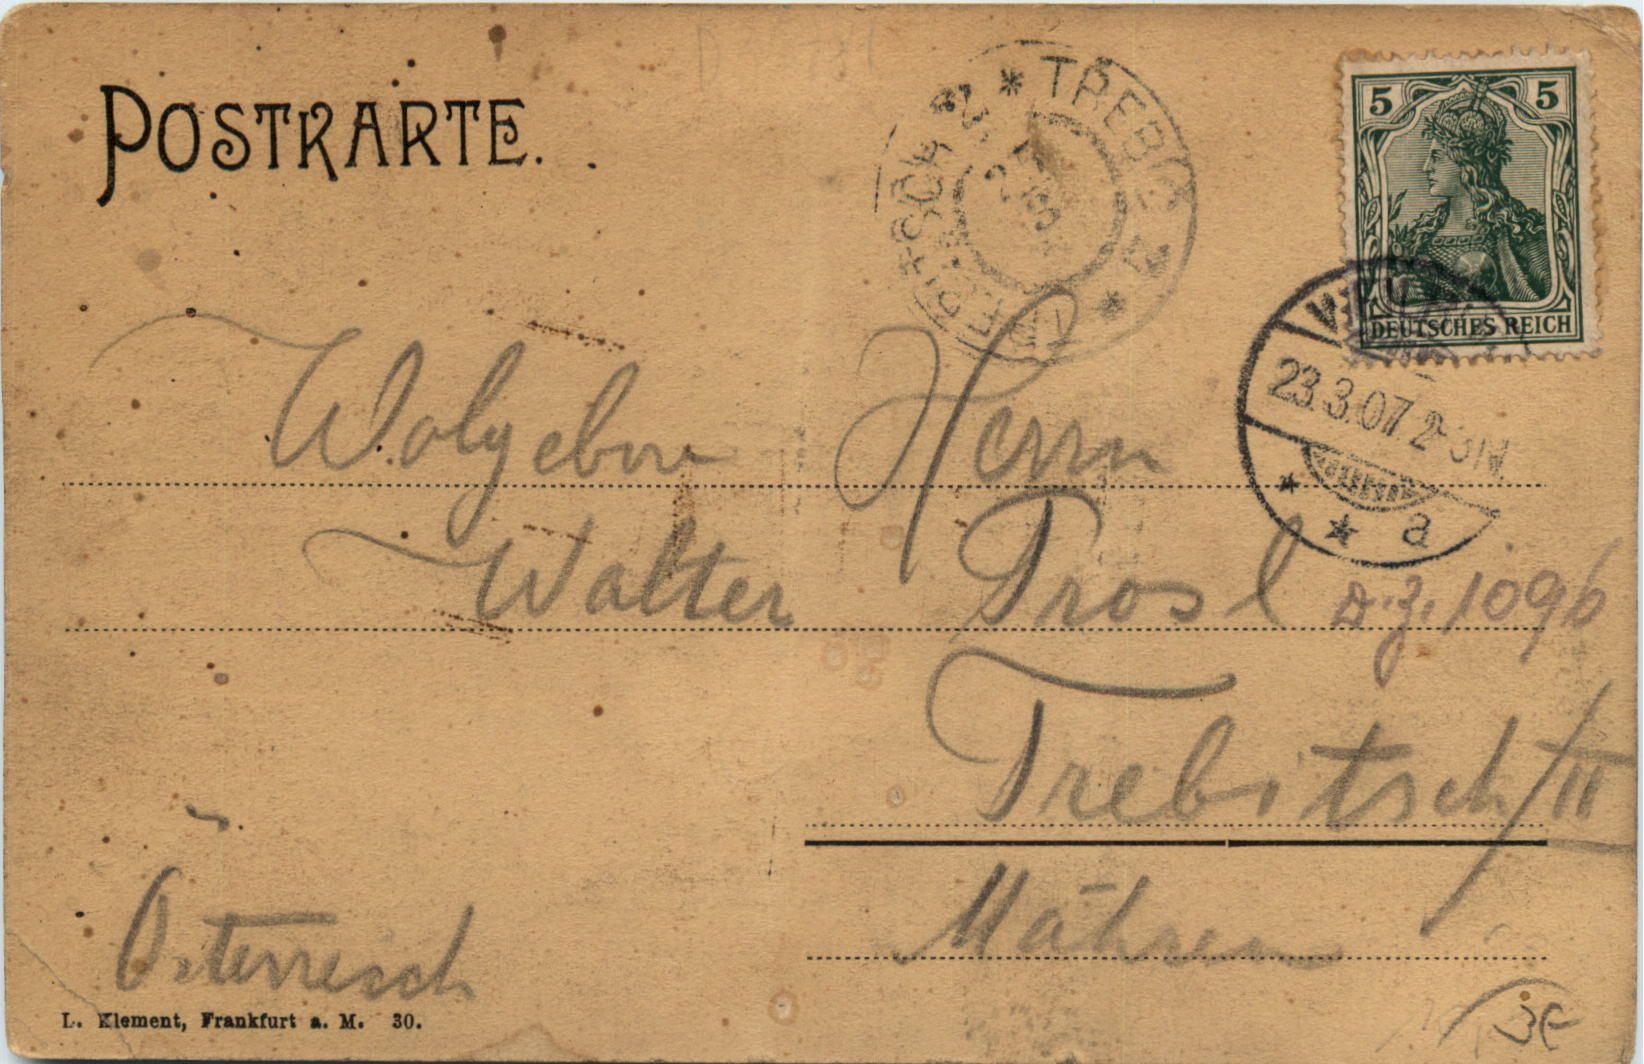 POSTKARTE.
TREBIČ 2
5 5
DEUTSCHES REICH
23.3.07. 2-3N.
a
Wolgeborn Herrn
Walter Prosl
Trebitsch/II
Mähren
Österreich
L. Klement, Frankfurt a. M. 30.
3€